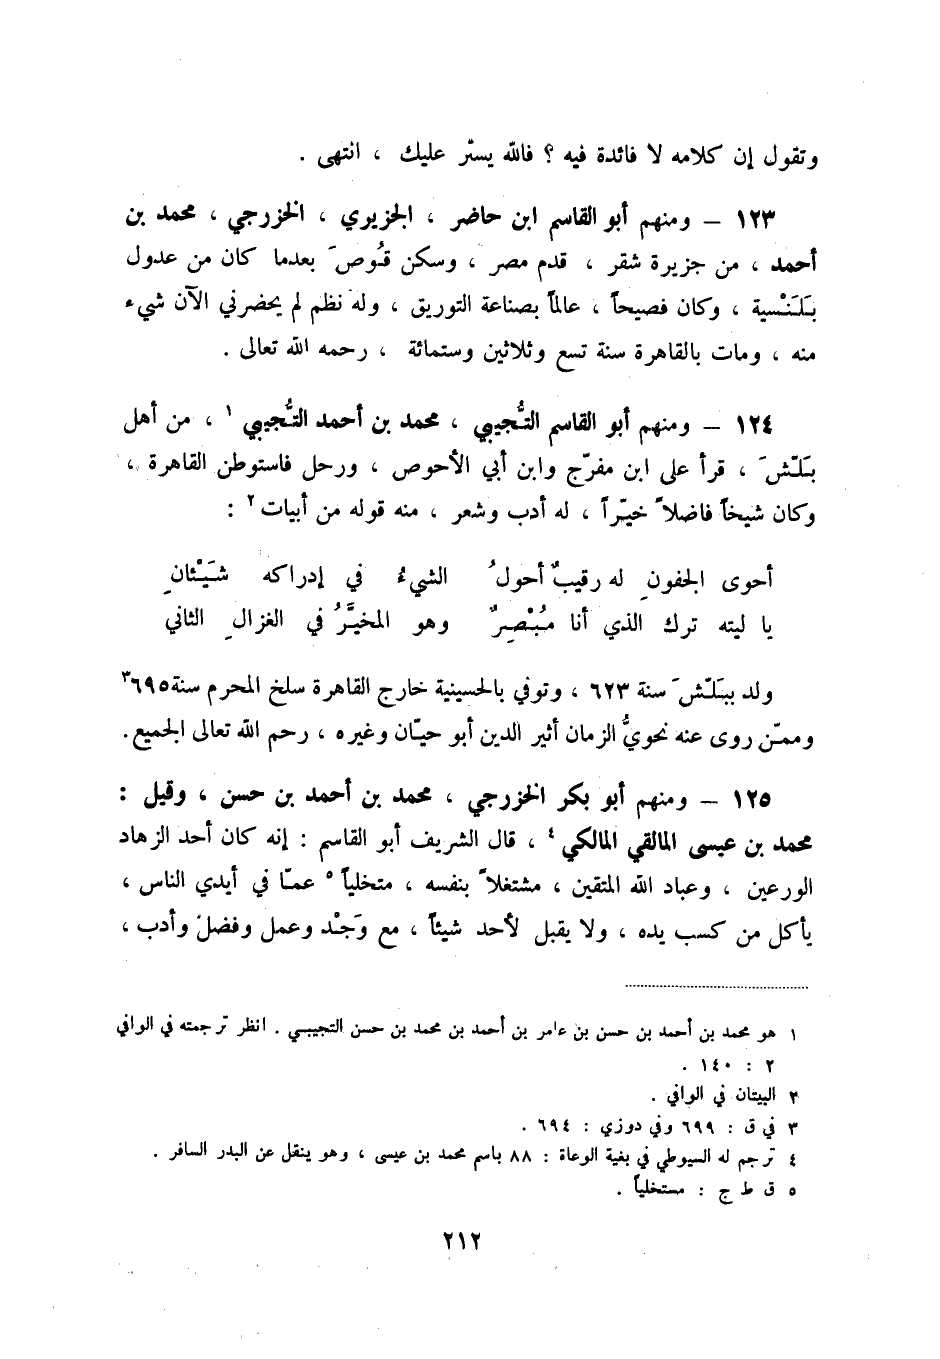 وتقول إن كلامه لا فائدة فيه ؟ فالله يستّر عليك ، انتهى .
١٢٣ – ومنهم أبو القاسم ابن حاضر ، الجزيري ، الخزرجي ، محمد بن
أحمد ، من جزيرة شقر ، قدم مصر ، وسكن قُوصَ بعدما كان من عدول
بَلَنْسية ، وكان فصيحاً ، عالماً بصناعة التوريق ، وله نظم لم يحضرني الآن شيء
منه ، ومات بالقاهرة سنة تسع وثلاثين وستمائة ، رحمه الله تعالى .
١٢٤ – ومنهم أبو القاسم التُّجيبي ، محمد بن أحمد التُّجيبي ١ ، من أهل
بَلّشَ ، قرأ على ابن مفرّج وابن أبي الأحوص ، ورحل فاستوطن القاهرة ،
وكان شيخاً فاضلاً خيّراً ، له أدب وشعر ، منه قوله من أبيات ٢ :
أحوى الجفونِ له رقيبٌ أحولُ الشيءُ في إدراكه شَيَئْانِ
يا ليته ترك الذي أنا مُبْصِرٌ وهو المخيَّرُ في الغزالِ الثاني
ولد ببَلّشَ سنة ٦٢٣ ، وتوفي بالحسينية خارج القاهرة سلخ المحرم سنة ٦٩٥ ٣
وممّن روى عنه نحويُّ الزمان أثير الدين أبو حيّان وغيره ، رحم الله تعالى الجميع .
١٢٥ – ومنهم أبو بكر الخزرجي ، محمد بن أحمد بن حسن ، وقيل :
محمد بن عيسى المالقي المالكي ٤ ، قال الشريف أبو القاسم : إنه كان أحد الزهاد
الورعين ، وعباد الله المتقين ، مشتغلاً بنفسه ، متخلياً ٥ عمّا في أيدي الناس ،
يأكل من كسب يده ، ولا يقبل لأحد شيئاً ، مع وَجْد وعمل وفضل وأدب ،
١ هو محمد بن أحمد بن حسن بن عامر بن أحمد بن محمد بن حسن التجيبي . انظر ترجمته في الوافي
٢ : ١٤٠ .
٢ البيتان في الوافي .
٣ في ق : ٦٩٩ وفي دوزي : ٦٩٤ .
٤ ترجم له السيوطي في بغية الوعاة : ٨٨ باسم محمد بن عيسى ، وهو ينقل عن البدر السافر .
٥ ق ط ج : مستخلياً .
٢١٢